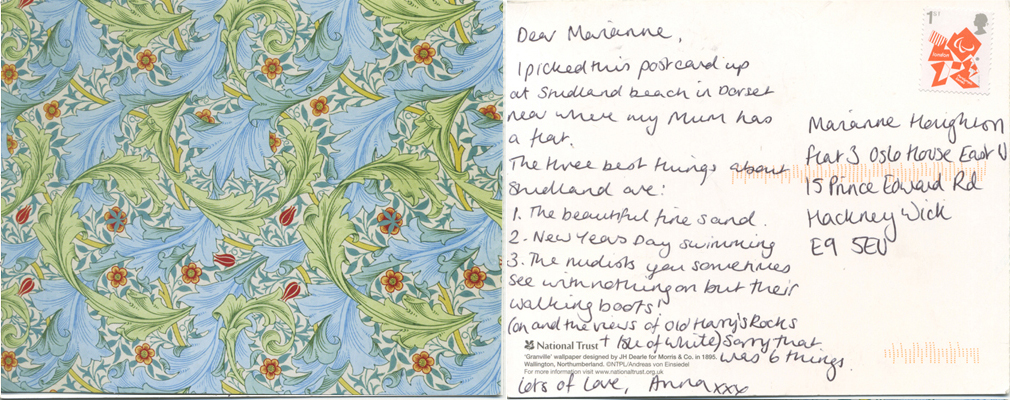 Dear Marianne,
I picked this postcard up
at Studland beach in Dorset
near where my Mum has
a flat.
The three best things about
Studland are:
1. The beautiful fine sand.
2. New Years Day swimming
3. The nudists you sometimes
see with nothing on but their
walking boots!
(oh and the views of Old Harry's Rocks
+ Isle of White) Sorry that
was 6 things.
Lots of Love, Anna xxx
National Trust
'Granville' wallpaper designed by JH Dearle for Morris & Co. in 1895.
Wallington, Northumberland. ©NTPL/Andreas von Einsiedel
For more information visit www.nationaltrust.org.uk
1st
Marianne Heighton
Flat 3 Oslo House East W
15 Prince Edward Rd
Hackney Wick
E9 5EU